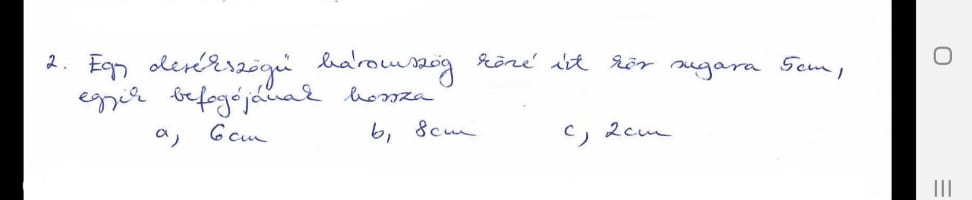 2. Egy derékszögű háromszög köré írt kör sugara 5cm,
egyik befogójának hossza
a, 6cm b, 8cm c, 2cm